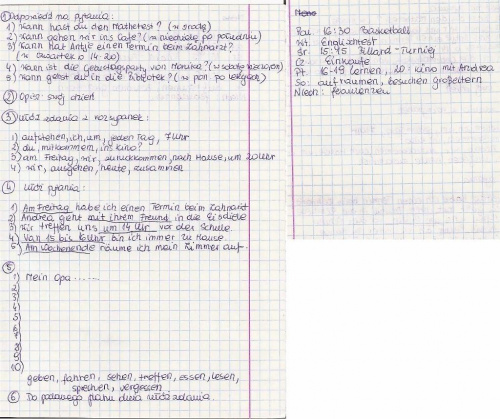 ① Odpowiedz na pytania:
1) Wann hast du den Mathetest? (w środę)
2) Wann gehen wir ins Cafe? (w niedzielę po południu)
3) Wann hat Antje einen Termin beim Zahnarzt?
(w czwartek o 14.20)
4) Wann ist die Geburtstagsparty von Monika? (w sobotę wieczorem)
5) Wann gehst du in die Bibliotek? (w pon po lekcjach)
② Opisz swój dzień
③ Ułóż zdania z rozsypanek:
1) aufstehen, ich, um, jeden Tag, 7 Uhr
2) du, mitkommen, ins Kino?
3) am Freitag, wir, zurückkommen, nach Hause, um 20 Uhr
4) wir, ausgehen, heute, zusammen
④ Ułóż pytania:
1) Am Freitag habe ich einen Termin beim Zahnarzt
2) Andrea geht mit ihrem Freund in die Eisdiele
3) Wir treffen uns um 14 Uhr vor der Schule.
4) Von 15 bis 16 Uhr bin ich immer zu Hause
5) Am Wochenende räume ich mein Zimmer auf.
⑤
1) Mein Opa ......
2)
3)
4)
5)
6)
7)
8)
9)
10)
geben, fahren, sehen, treffen, essen, lesen,
sprechen, vergessen
⑥ Do podanego planu dnia ułóż zdania.
Pon. 16:30 Basketball
Wt. Englischtest
Śr 15:45 Billard-Turnier
Cz. Einkäufe
Pt. 16-19 lernen, 20: Kino mit Andrea
So: aufräumen, besuchen Großeltern
Niedz: faulenzen